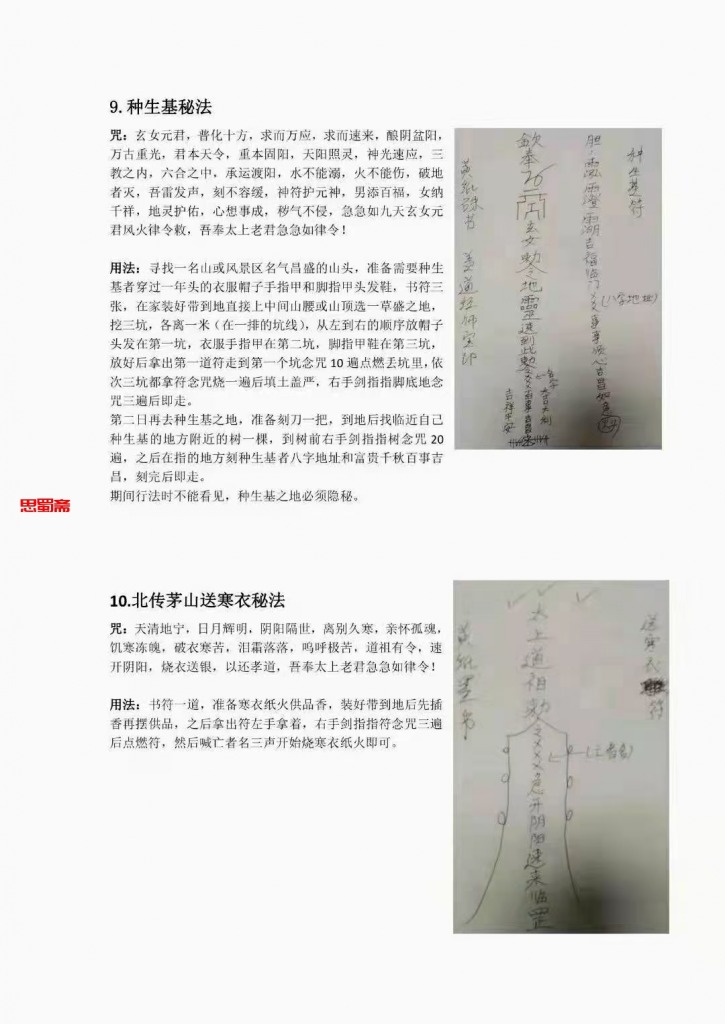 9. 种生基秘法
咒：玄女元君，普化十方，求而万应，求而速来，酿阴盆阳，
万古重光，君本天令，重本固阳，天阳照灵，神光速应，三
教之内，六合之中，承运渡阳，水不能溺，火不能伤，破地
者灭，吾雷发声，刻不容缓，神符护元神，男添百福，女纳
千祥，地灵护佑，心想事成，秽气不侵，急急如九天玄女元
君风火律令敕，吾奉太上老君急急如律令！
用法：寻找一名山或风景区名气昌盛的山头，准备需要种生
基者穿过一年头的衣服帽子手指甲和脚指甲头发鞋，书符三
张，在家装好带到地直接上中间山腰或山顶选一草盛之地，
挖三坑，各离一米（在一排的坑线），从左到右的顺序放帽子
头发在第一坑，衣服手指甲在第二坑，脚指甲鞋在第三坑，
放好后拿出第一道符走到第一个坑念咒 10 遍点燃丢坑里，依
次三坑都拿符念咒烧一遍后填土盖严，右手剑指指脚底地念
咒三遍后即走。
第二日再去种生基之地，准备刻刀一把，到地后找临近自己
种生基的地方附近的树一棵，到树前右手剑指指树念咒 20
遍，之后在指的地方刻种生基者八字地址和富贵千秋百事吉
昌，刻完后即走。
期间行法时不能看见，种生基之地必须隐秘。
种生基符
吉福临门
(八字地址)
钦奉
玄女勅令地靈速到此勅
吉祥平安
大吉大利
黄纸珠书
思蜀斋
10.北传茅山送寒衣秘法
咒：天清地宁，日月辉明，阴阳隔世，离别久寒，亲怀孤魂，
饥寒冻魄，破衣寒苦，泪霜落落，呜呼极苦，道祖有令，速
开阴阳，烧衣送银，以还孝道，吾奉太上老君急急如律令！
用法：书符一道，准备寒衣纸火供品香，装好带到地后先插
香再摆供品，之后拿出符左手拿着，右手剑指指符念咒三遍
后点燃符，然后喊亡者名三声开始烧寒衣纸火即可。
送寒衣
符
太上道祖勅令
急开阴阳速来临罡
(亡者名)
黄纸墨书